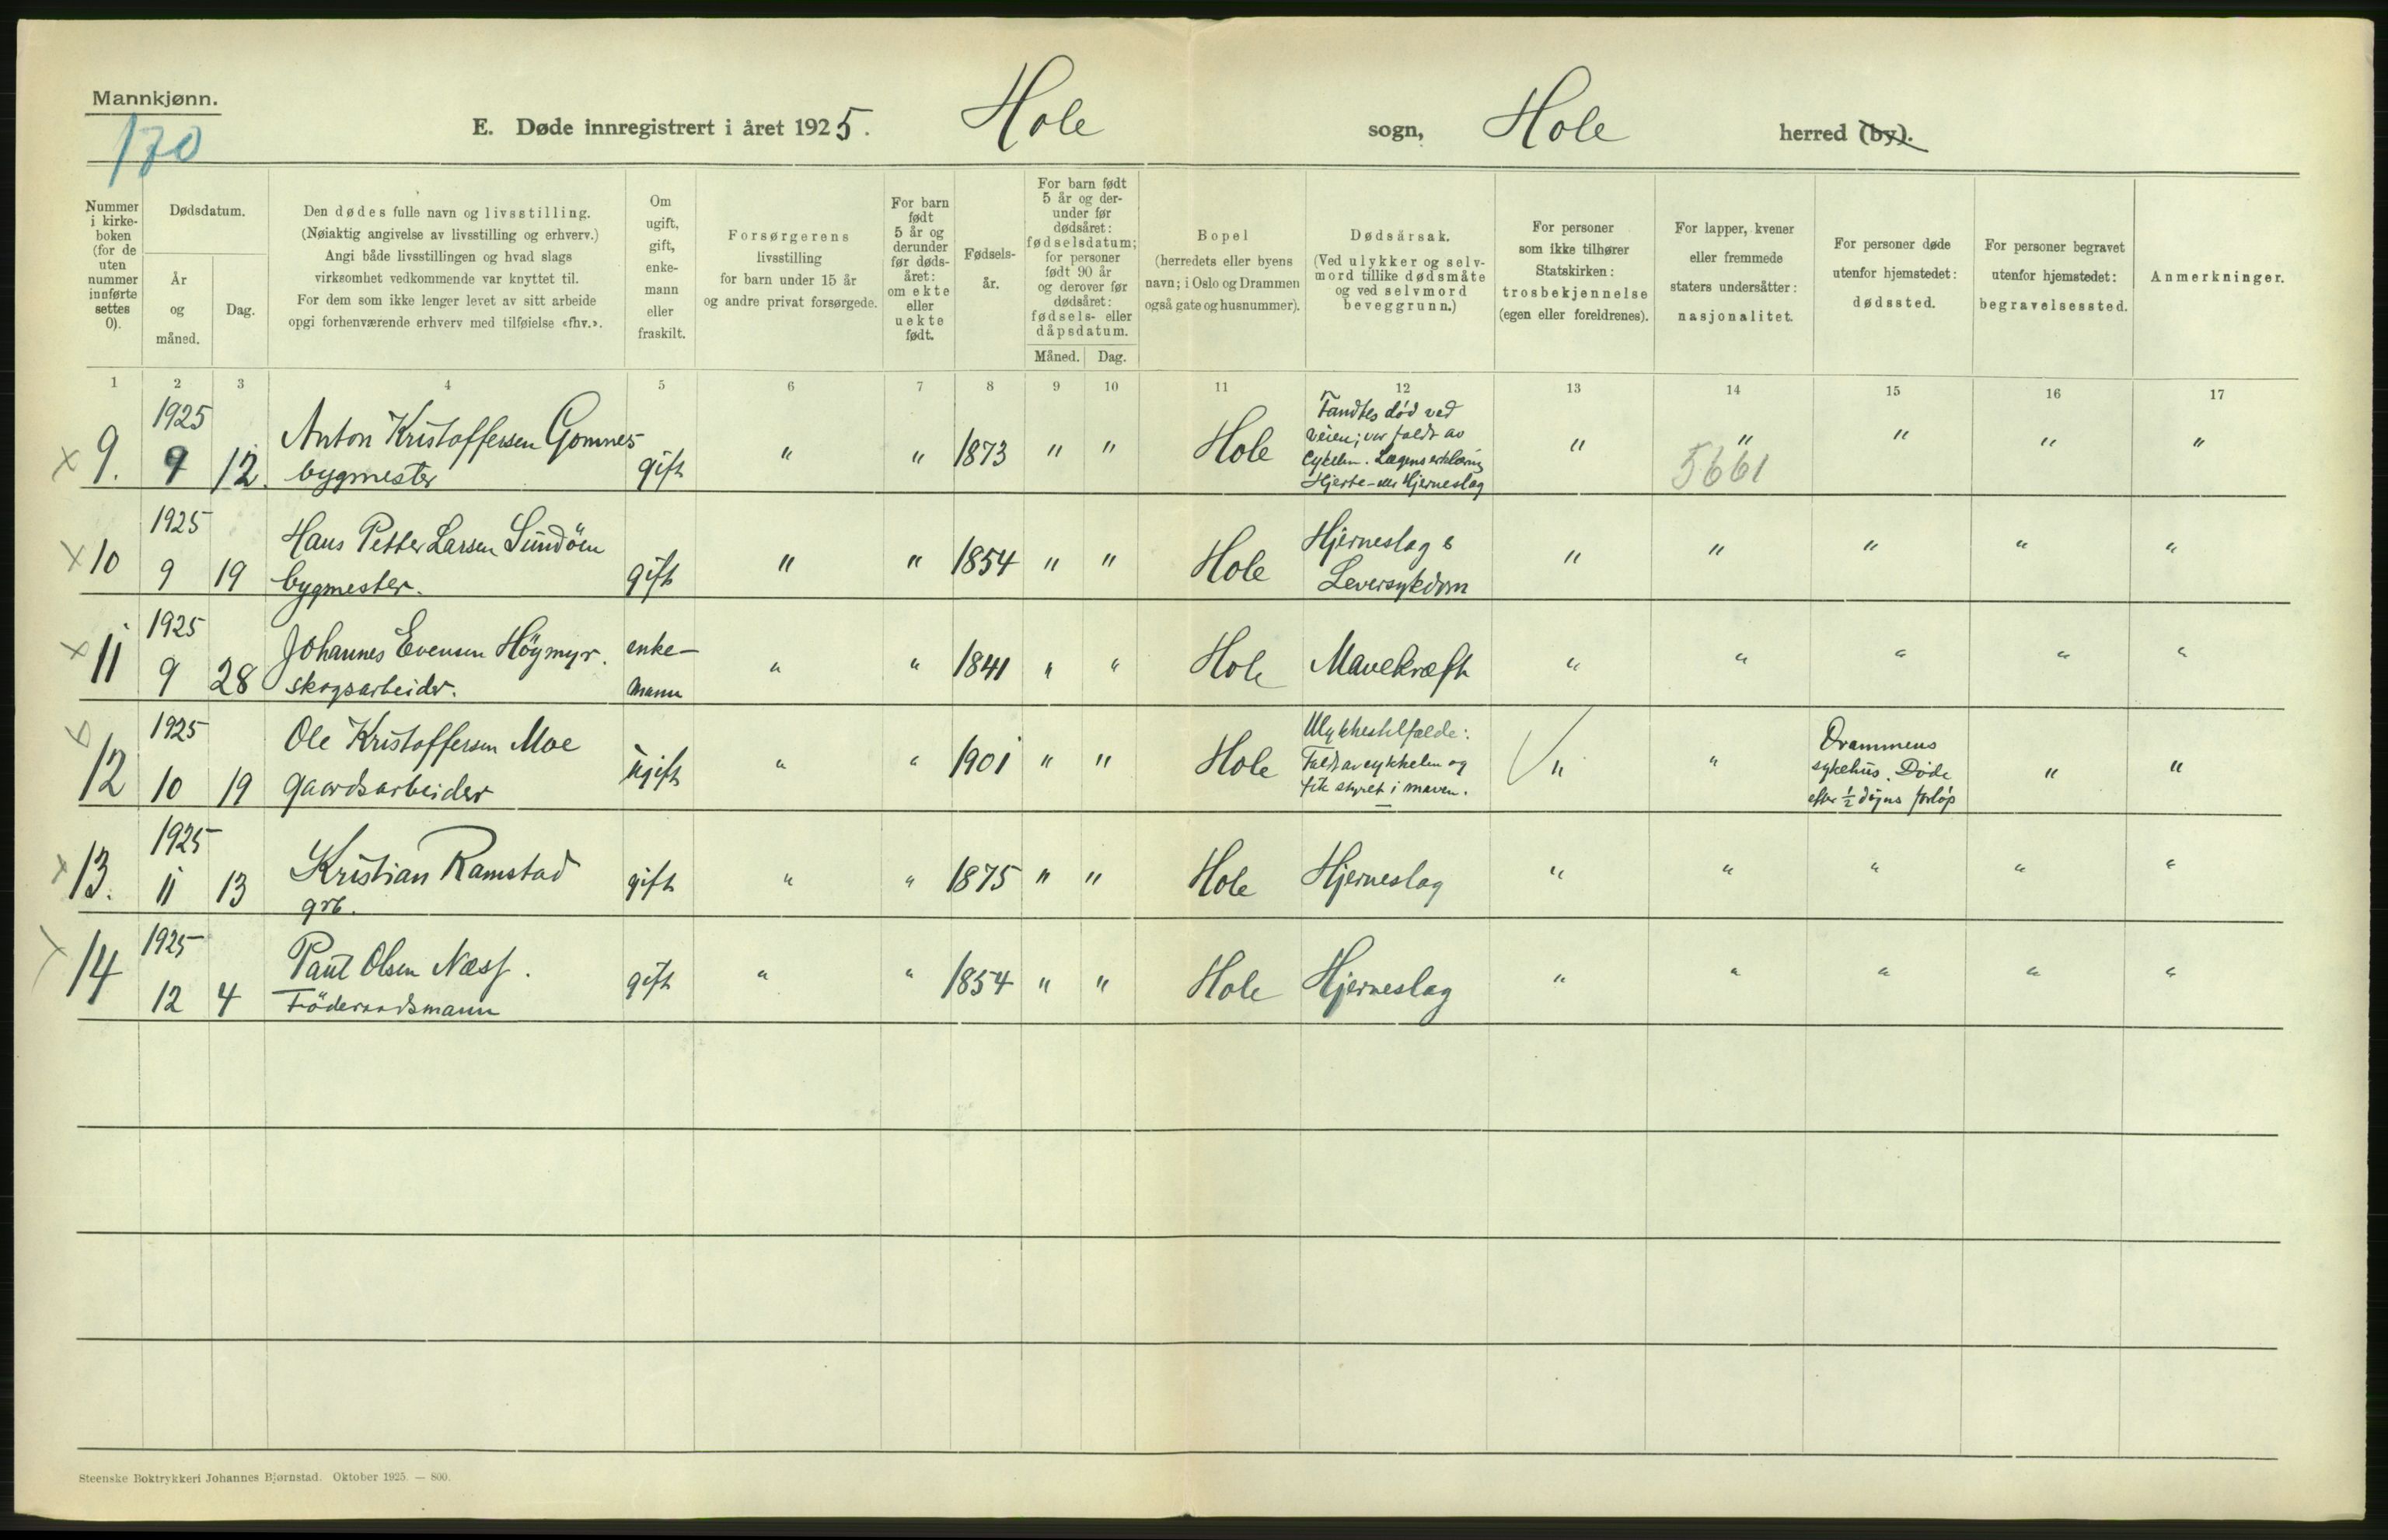 Mannkjønn.
170
E. Døde innregistrert i året 1925. Hole sogn, Hole herred (by).
Nummer i kirke-boken (for de uten nummer innførte settes 0).
Dødsdatum.
År og måned.
Dag.
Den dødes fulle navn og livsstilling.
(Nøiaktig angivelse av livsstilling og erhverv.)
Angi både livsstillingen og hvad slags
virksomhet vedkommende var knyttet til.
For dem som ikke lenger levet av sitt arbeide
opgi forhenværende erhverv med tilføielse «fhv.».
Om ugift, gift, enke-mann eller fraskilt.
Forsørgerens
livsstilling
for barn under 15 år
og andre privat forsørgede.
For barn født 5 år og derunder før døds-året: om ekte eller uekte født.
Fødsels-år.
For barn født 5 år og der-under før dødsåret: fødselsdatum; for personer født 90 år og derover før dødsåret: fødsels- eller dåpsdatum.
Måned. Dag.
Bopel
(herredets eller byens
navn; i Oslo og Drammen
også gate og husnummer).
Dødsårsak.
(Ved ulykker og selv-
mord tillike dødsmåte
og ved selvmord
beveggrunn.)
For personer
som ikke tilhører
Statskirken:
trosbekjennelse
(egen eller foreldrenes).
For lapper, kvener
eller fremmede
staters undersåtter:
nasjonalitet.
For personer døde
utenfor hjemstedet:
dødssted.
For personer begravet
utenfor hjemstedet:
begravelsessted.
Anmerkninger.
1 2 3 4 5 6 7 8 9 10 11 12 13 14 15 16 17
x 9. 1925 9 12. Anton Kristoffersen Gomnes bygmester gift " " 1873 " " Hole Fandtes død ved veien; var faldt av Cykelen. Lægens erklæring Hjerte- eller Hjerneslag " " " " "
5661
x 10 1925 9 19 Hans Petter Larsen Sundöen bygmester. gift " " 1854 " " Hole Hjerneslag & Leversykdom " " " " "
x 11 1925 9 28 Johannes Evensen Höymyr. skogsarbeider. enke-mann " " 1841 " " Hole Mavekræft " " " " "
12 1925 10 19 Ole Kristoffersen Moe gaardsarbeider ugift " " 1901 " " Hole Ulykkestilfælde: Faldt av cykkelen og fik styret i maven. " " Drammens sykehus. Døde efter ½ døgns forløp " "
x 13. 1925 11 13 Kristian Ramstad grb. gift " " 1875 " " Hole Hjerneslag " " " " "
14 1925 12 4 Paul Olsen Næss. Föderaadsmann gift " " 1854 " " Hole Hjerneslag " " " " "
Steenske Boktrykkeri Johannes Bjørnstad. Oktober 1925. — 800.